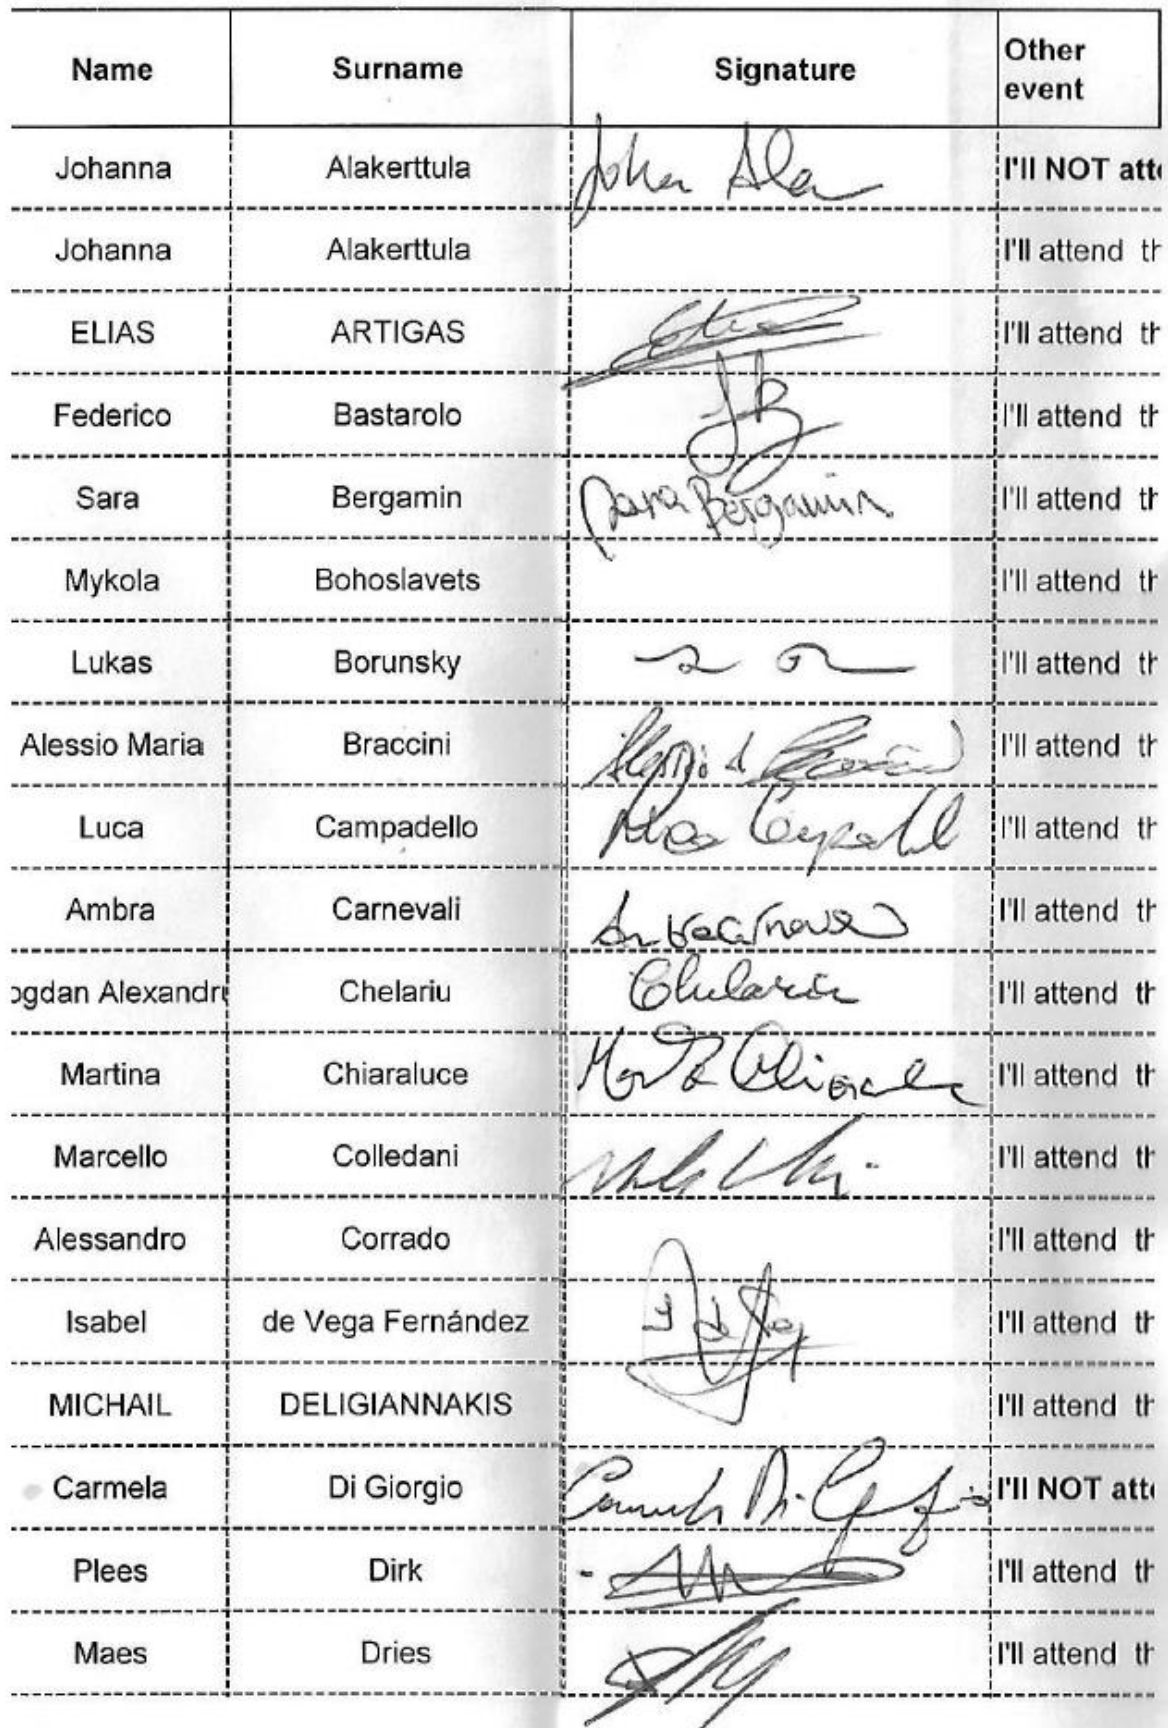 Name Surname Signature Other event
Johanna Alakerttula Joha Ala I'll NOT atte
Johanna Alakerttula I'll attend th
ELIAS ARTIGAS I'll attend th
Federico Bastarolo I'll attend th
Sara Bergamin Sara Bergamin I'll attend th
Mykola Bohoslavets I'll attend th
Lukas Borunsky I'll attend th
Alessio Maria Braccini I'll attend th
Luca Campadello I'll attend th
Ambra Carnevali I'll attend th
ogdan Alexandru Chelariu Chelariu I'll attend th
Martina Chiaraluce I'll attend th
Marcello Colledani I'll attend th
Alessandro Corrado I'll attend th
Isabel de Vega Fernández I'll attend th
MICHAIL DELIGIANNAKIS I'll attend th
Carmela Di Giorgio I'll NOT atte
Plees Dirk I'll attend th
Maes Dries I'll attend th